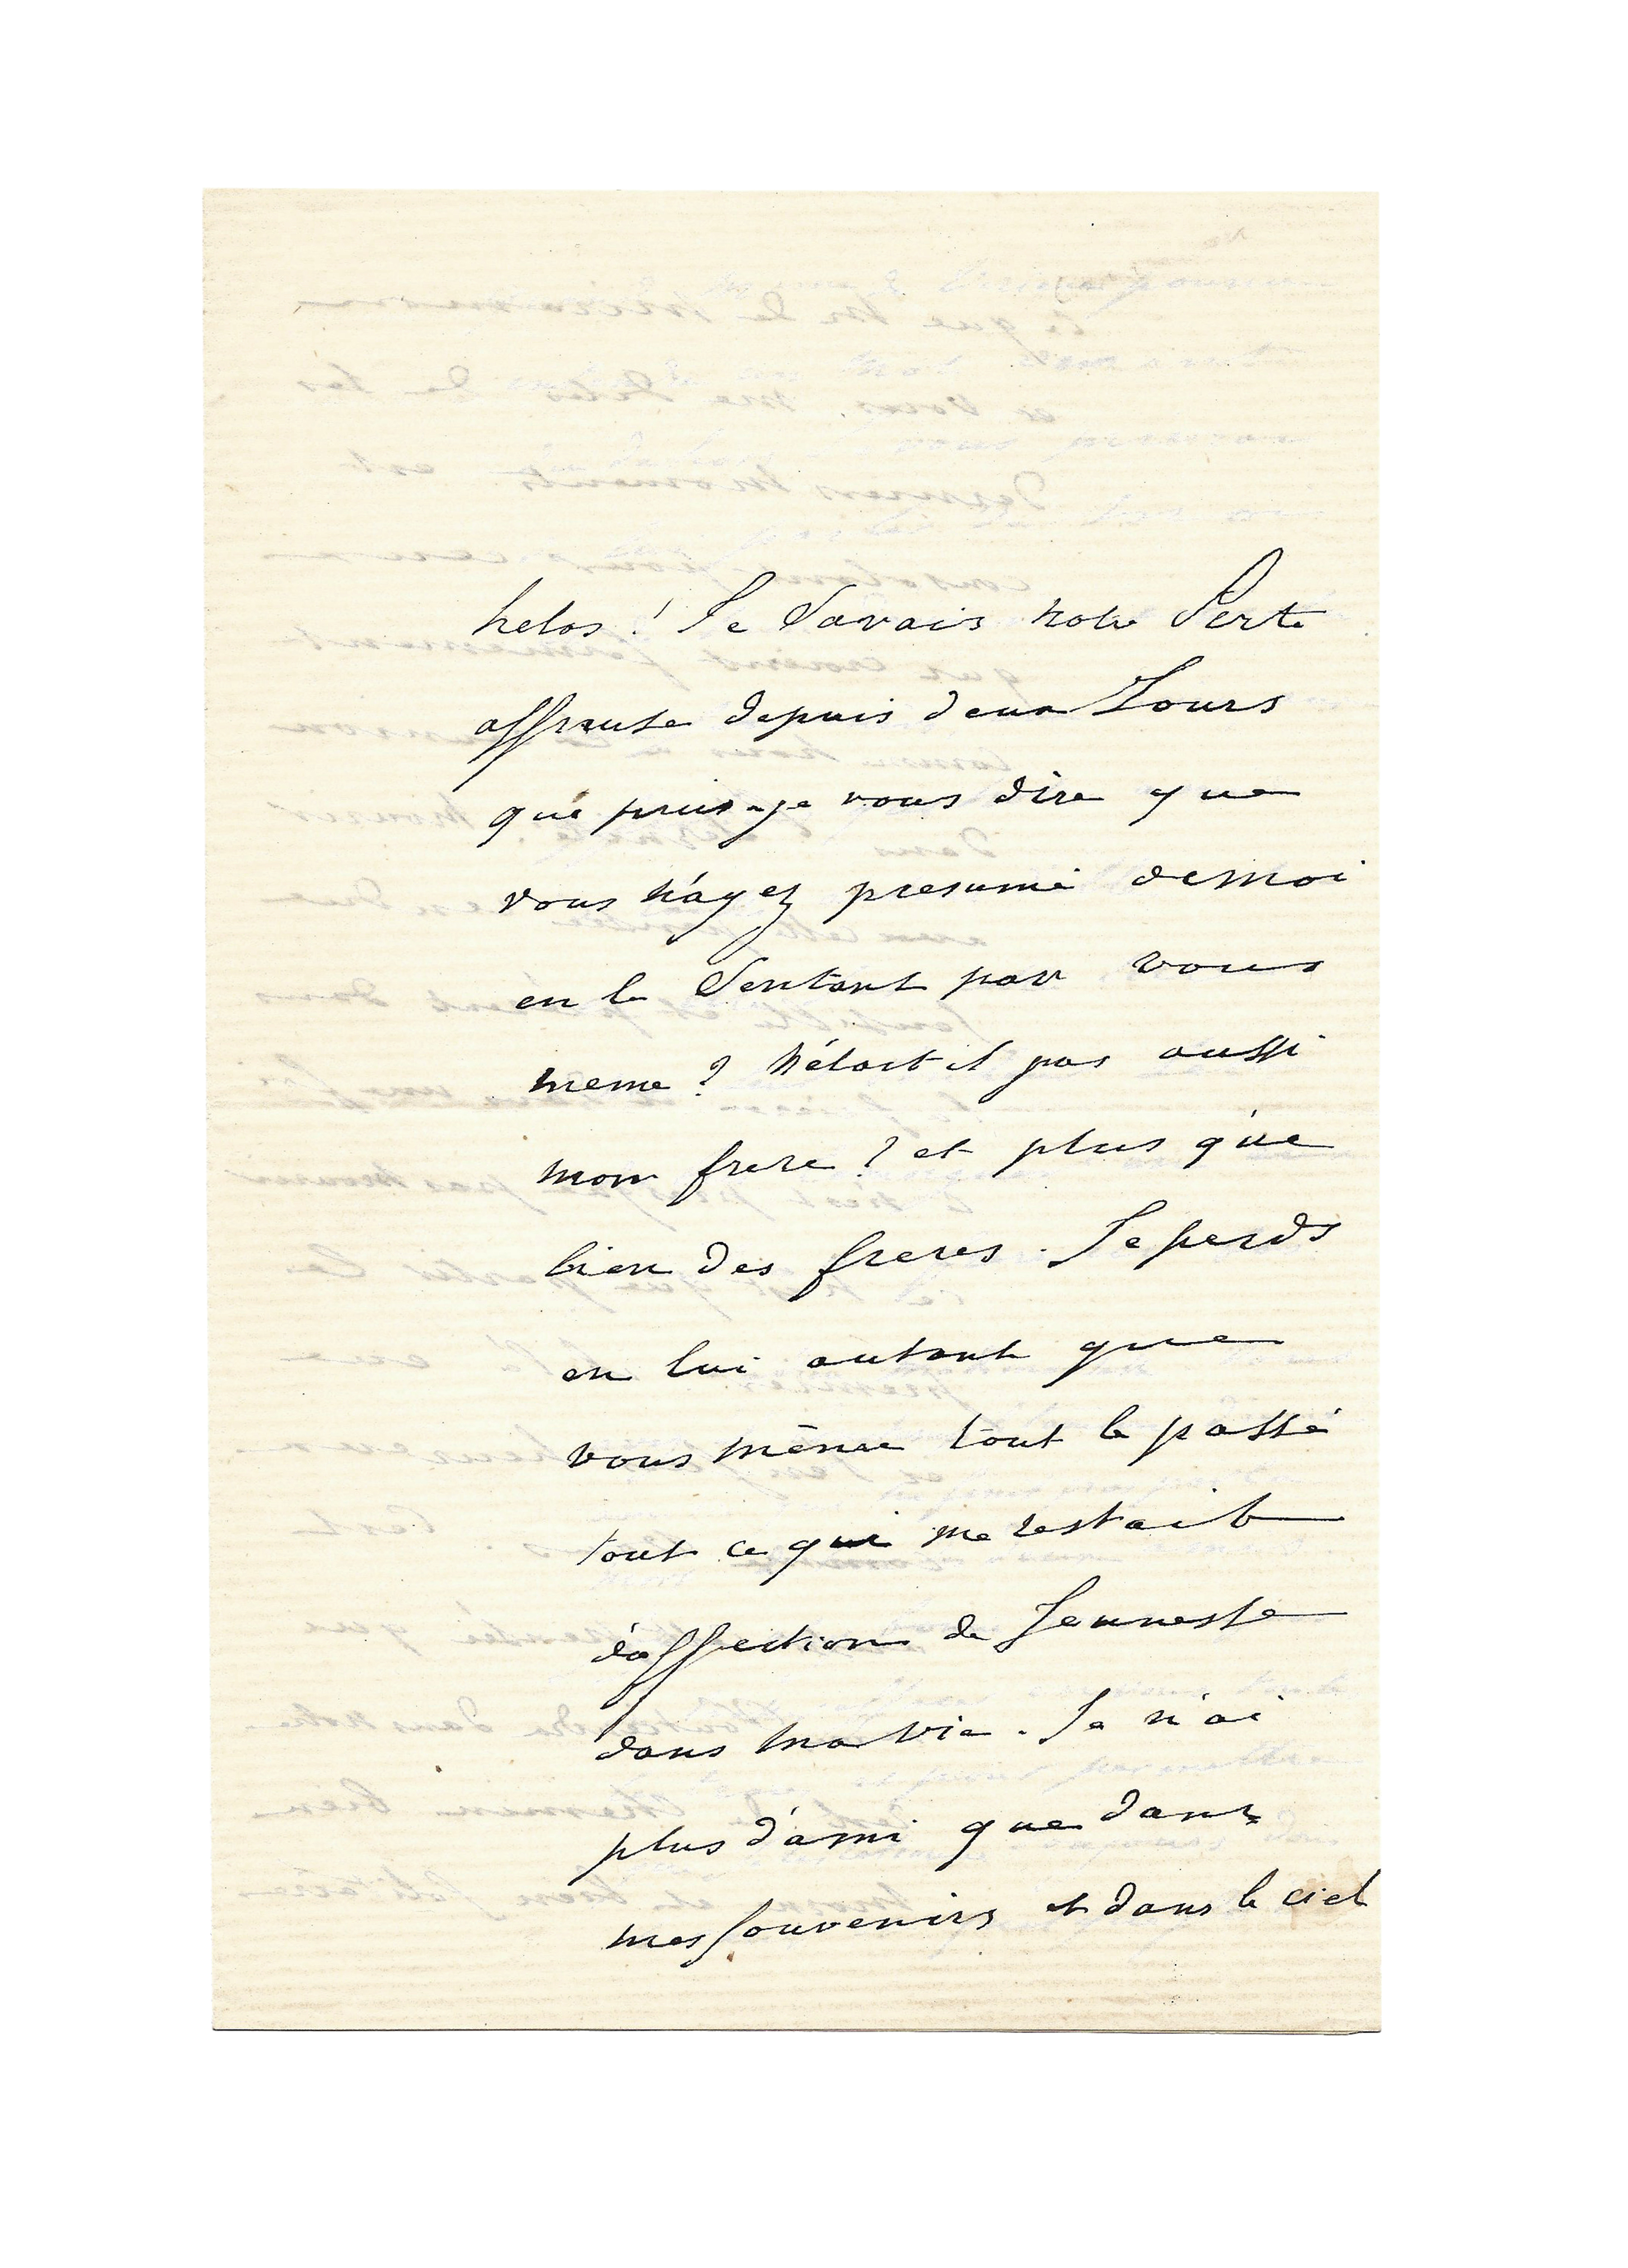 helas ! Je Savais notre Perte
affreuse depuis deux Jours
que puis-je vous dire que
vous n'ayez presumé de moi
en le Sentant par vous
meme ? N'étoit il pas aussi
mon frere ? et plus que
bien des freres . Je perds
en lui autant que
vous même tout le passé
tout ce qui me restait
d'affection de Jeunesse
dans ma vie . Je n'ai
plus d'ami que dans
mes souvenirs et dans le ciel